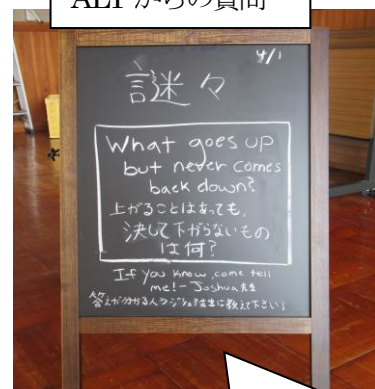 ALTからの質問
4/1
謎々
What goes up
but never comes
back down?
上がることはあっても、
決して下がらないもの
は何?
If you know, come tell
me! - Joshua先生
答えが分かる人→ジョシュア先生に教えて下さい!